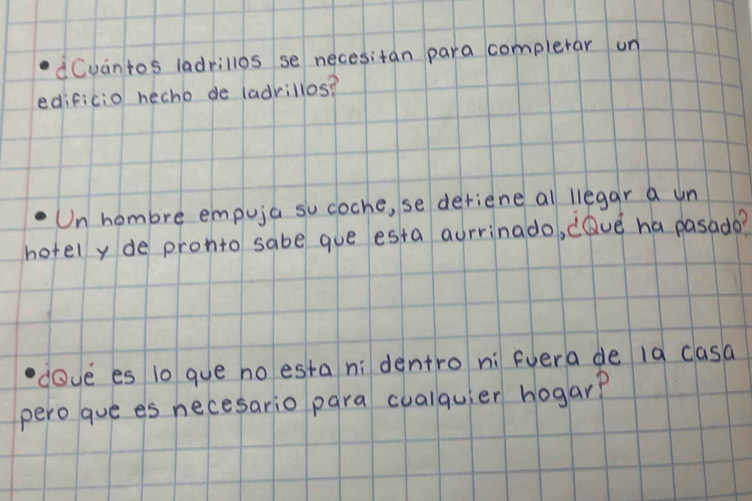 • ¿Cuántos ladrillos se necesitan para completar un
edificio hecho de ladrillos?
• Un hombre empuja su coche, se detiene al llegar a un
hotel y de pronto sabe que esta aurrinado, ¿Qué ha pasado?
• ¿Qué es lo que no esta ni dentro ni fuera de la casa
pero que es necesario para cualquier hogar?